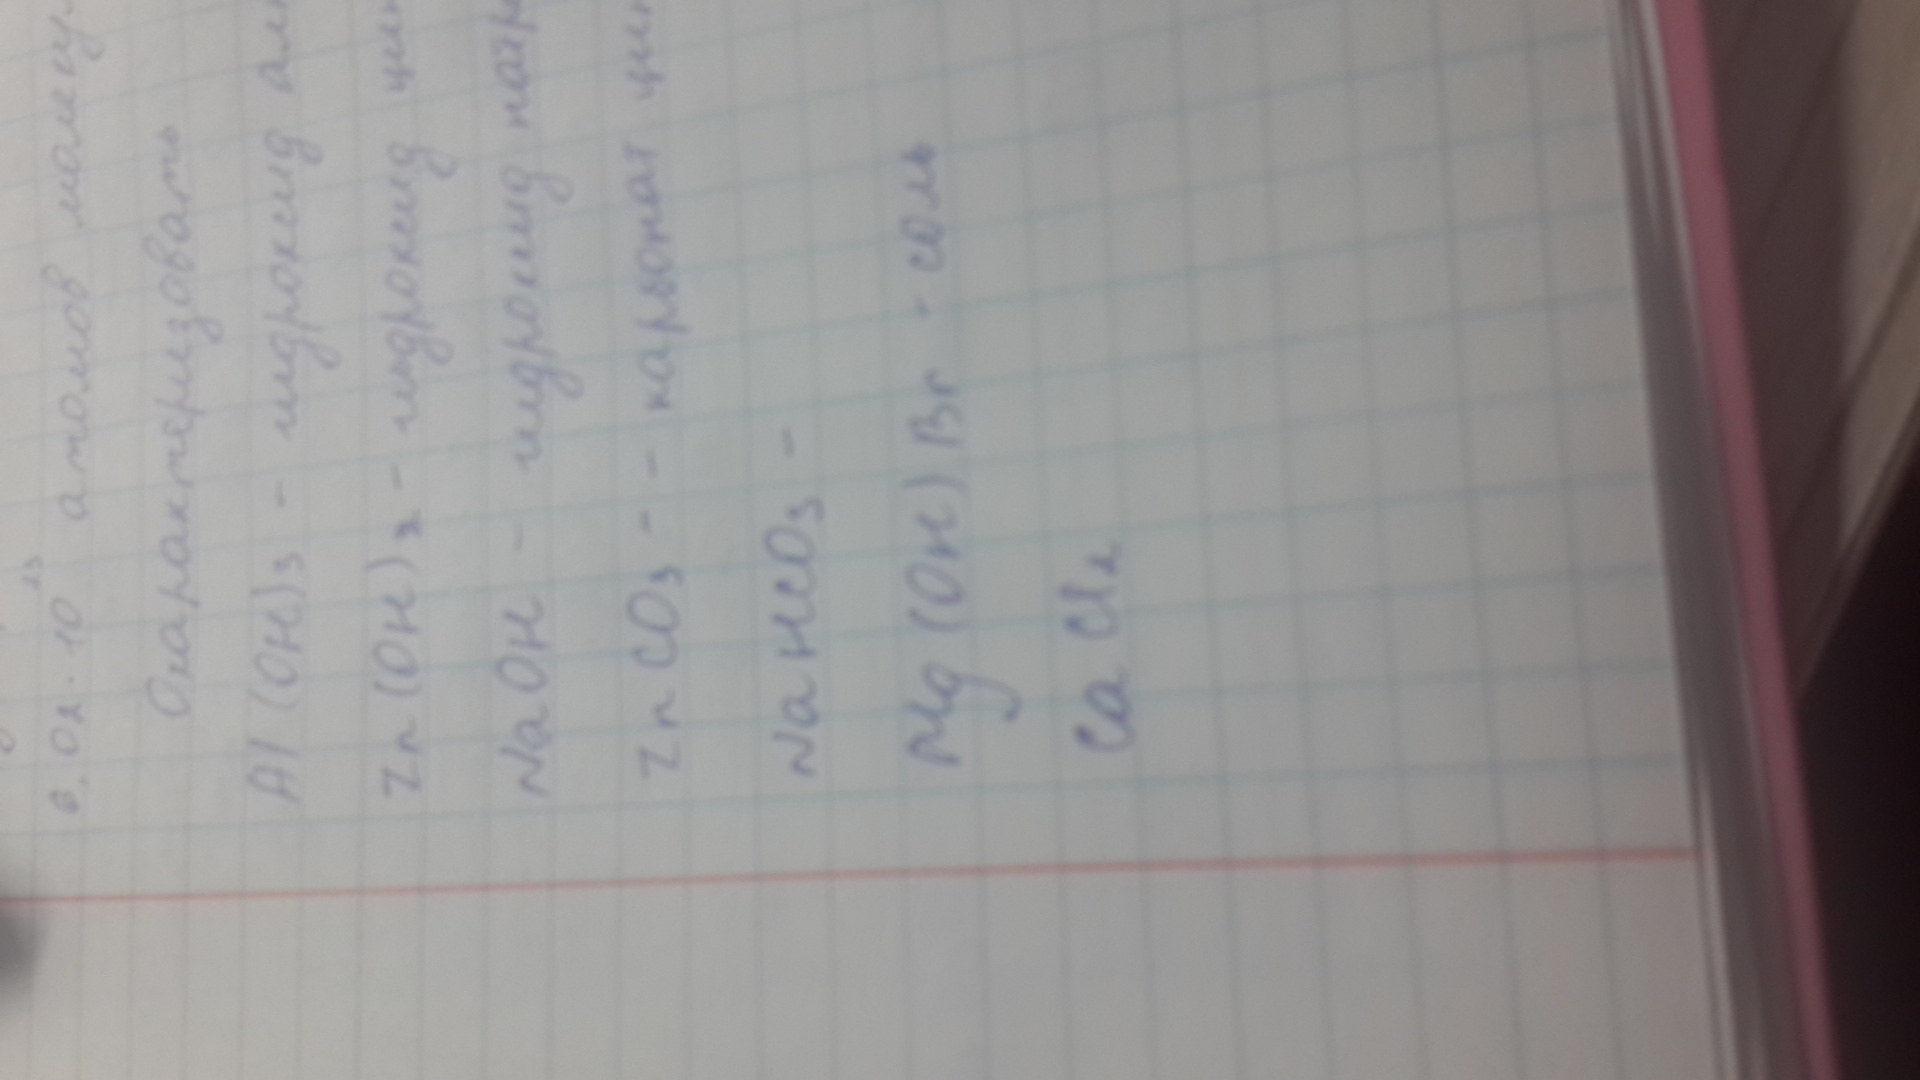 6,02 · 10²³ атомов молеку
Охарактеризовать
Al(OH)₃ - гидроксид алю
Zn(OH)₂ - гидроксид цин
NaOH - гидроксид натри
ZnCO₃ - - карбонат цин
NaHCO₃ -
Mg(OH)Br - соль
CaCl₂